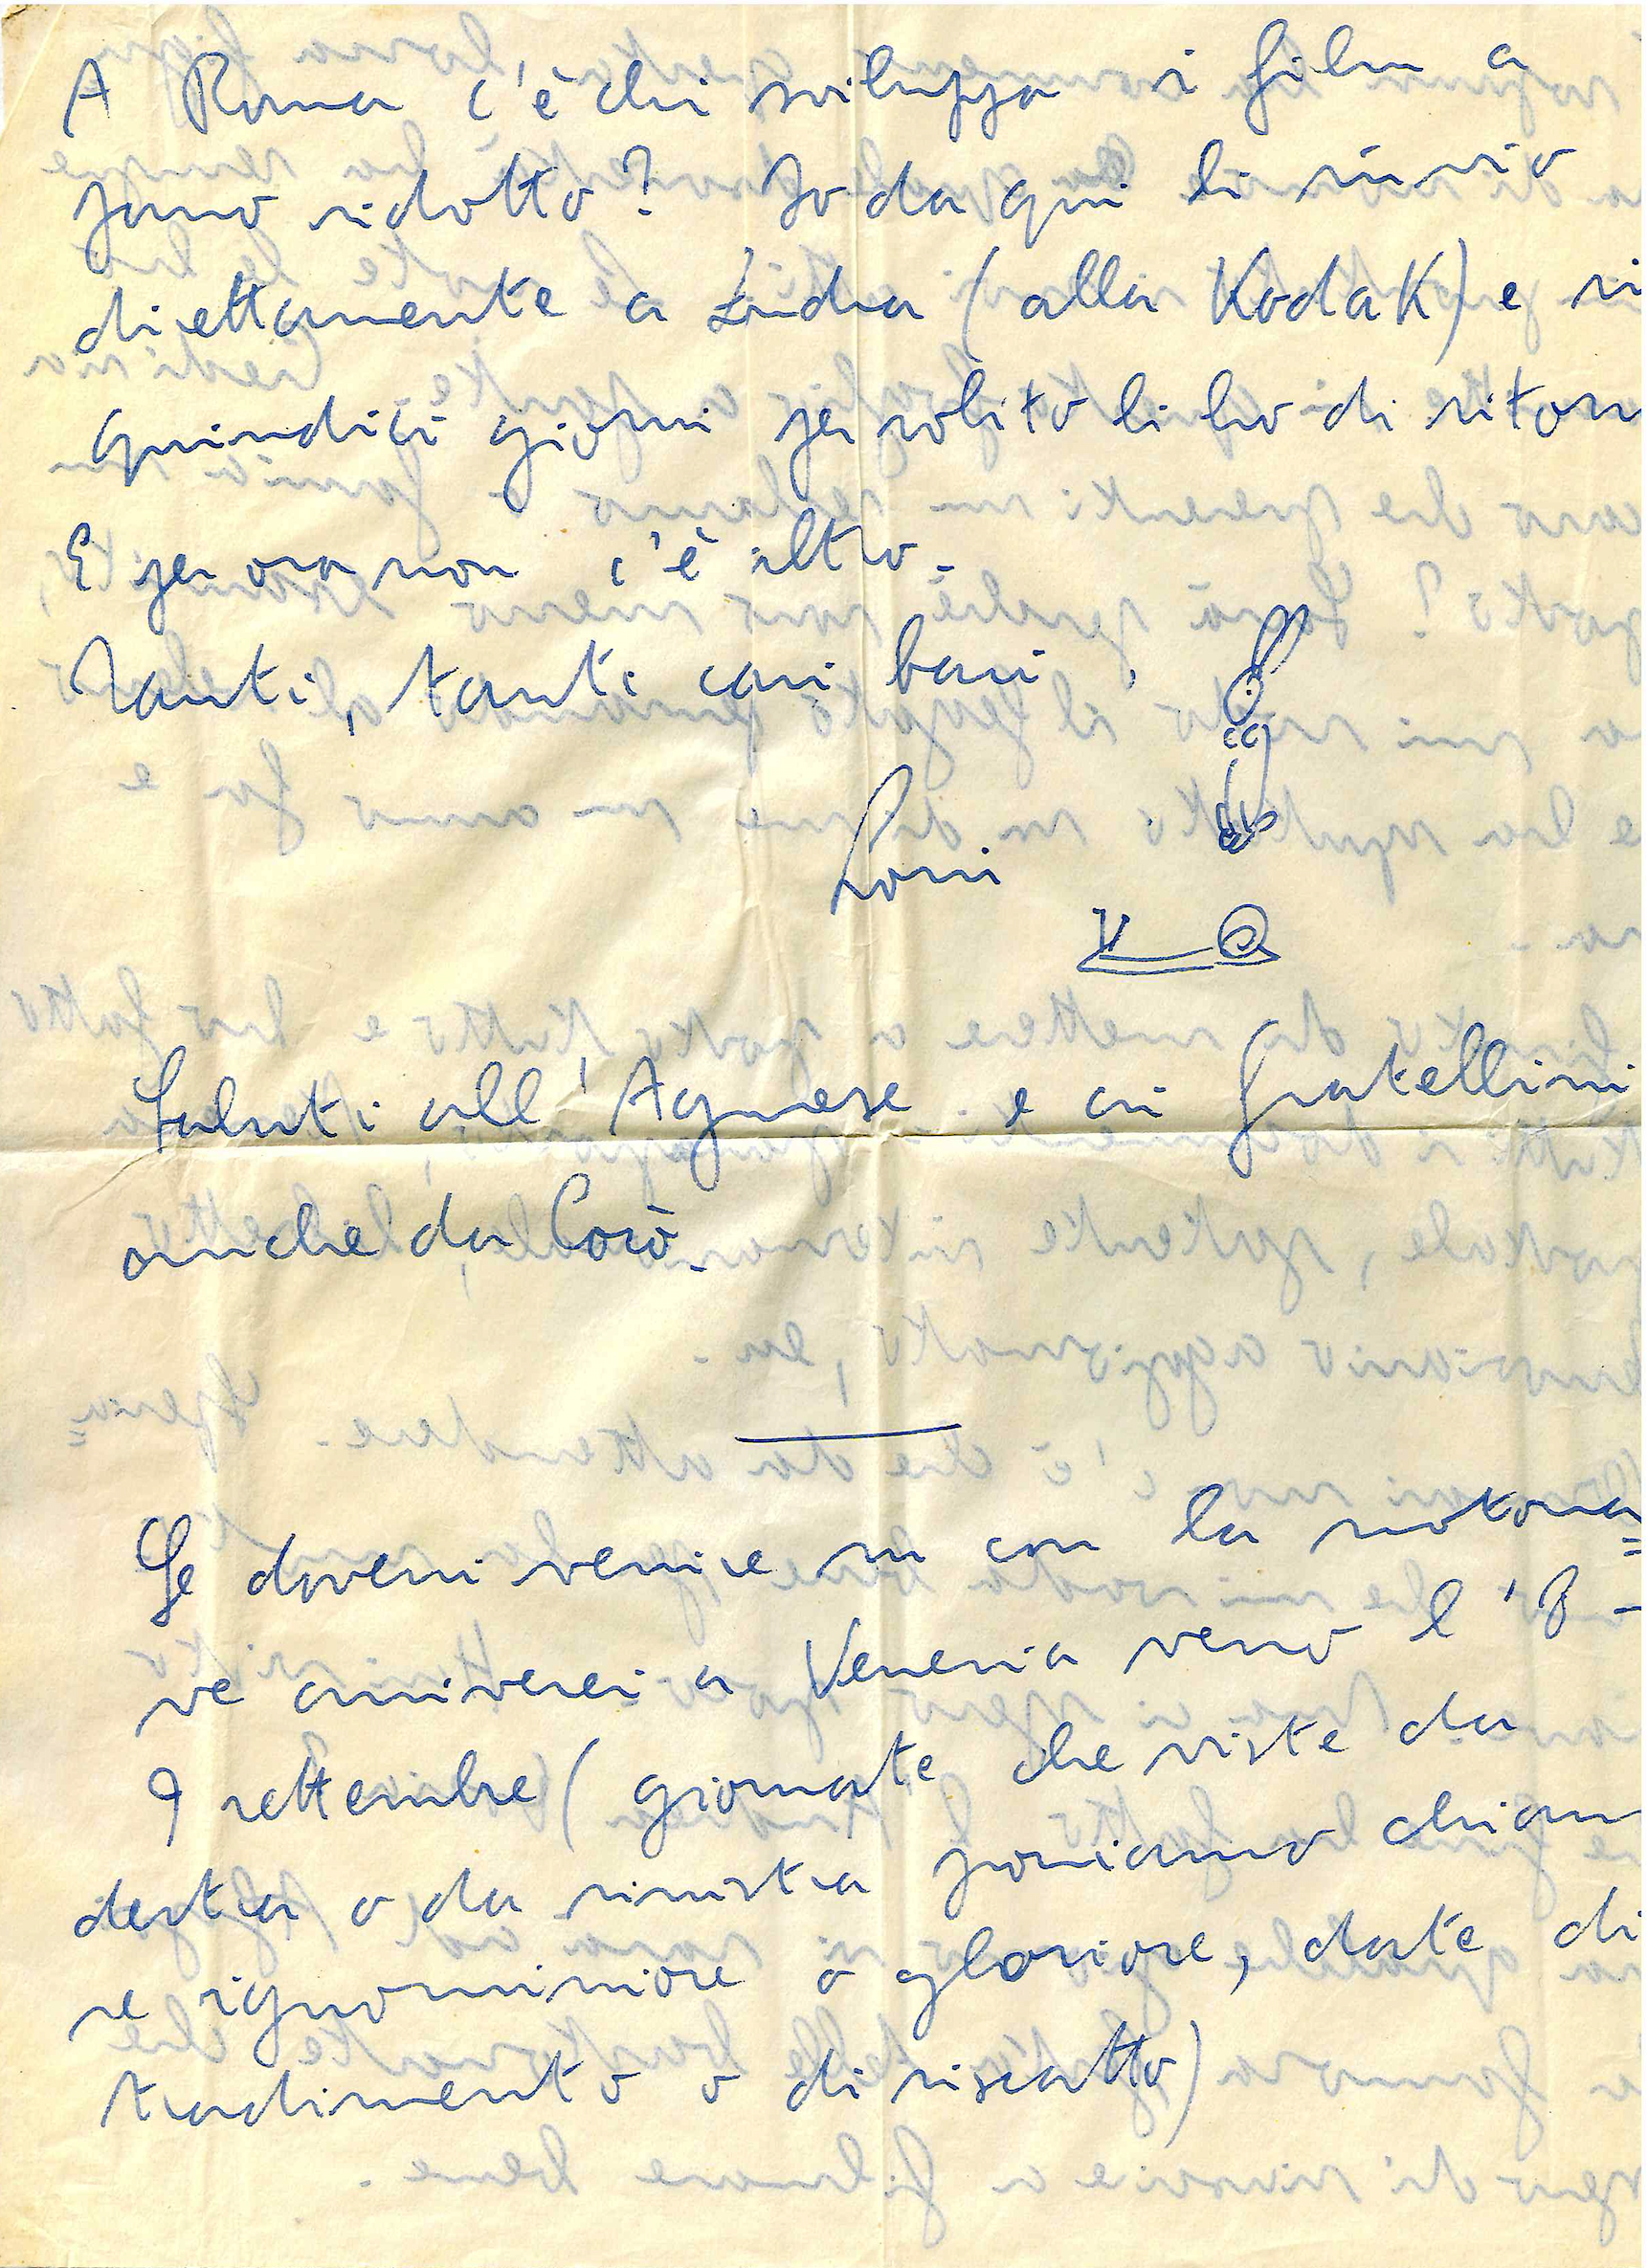 A Roma c'è chi sviluppa i film a
passo ridotto? Io da qui li invio
direttamente a Londra (alla Kodak) e in
quindici giorni per solito li ho di ritor
E per ora non c'è altro.
Tanti, tanti cari baci,
Loris
Saluti all'Agnese e ai fratellini
anche da Corò.
Se dovessi venire su con la motona=
ve arriverei a Venezia verso l'8-
9 settembre (giornate che viste da
destra o da sinistra possiamo chiam
re ignominiose o gloriose, date di
tradimento o di riscatto)